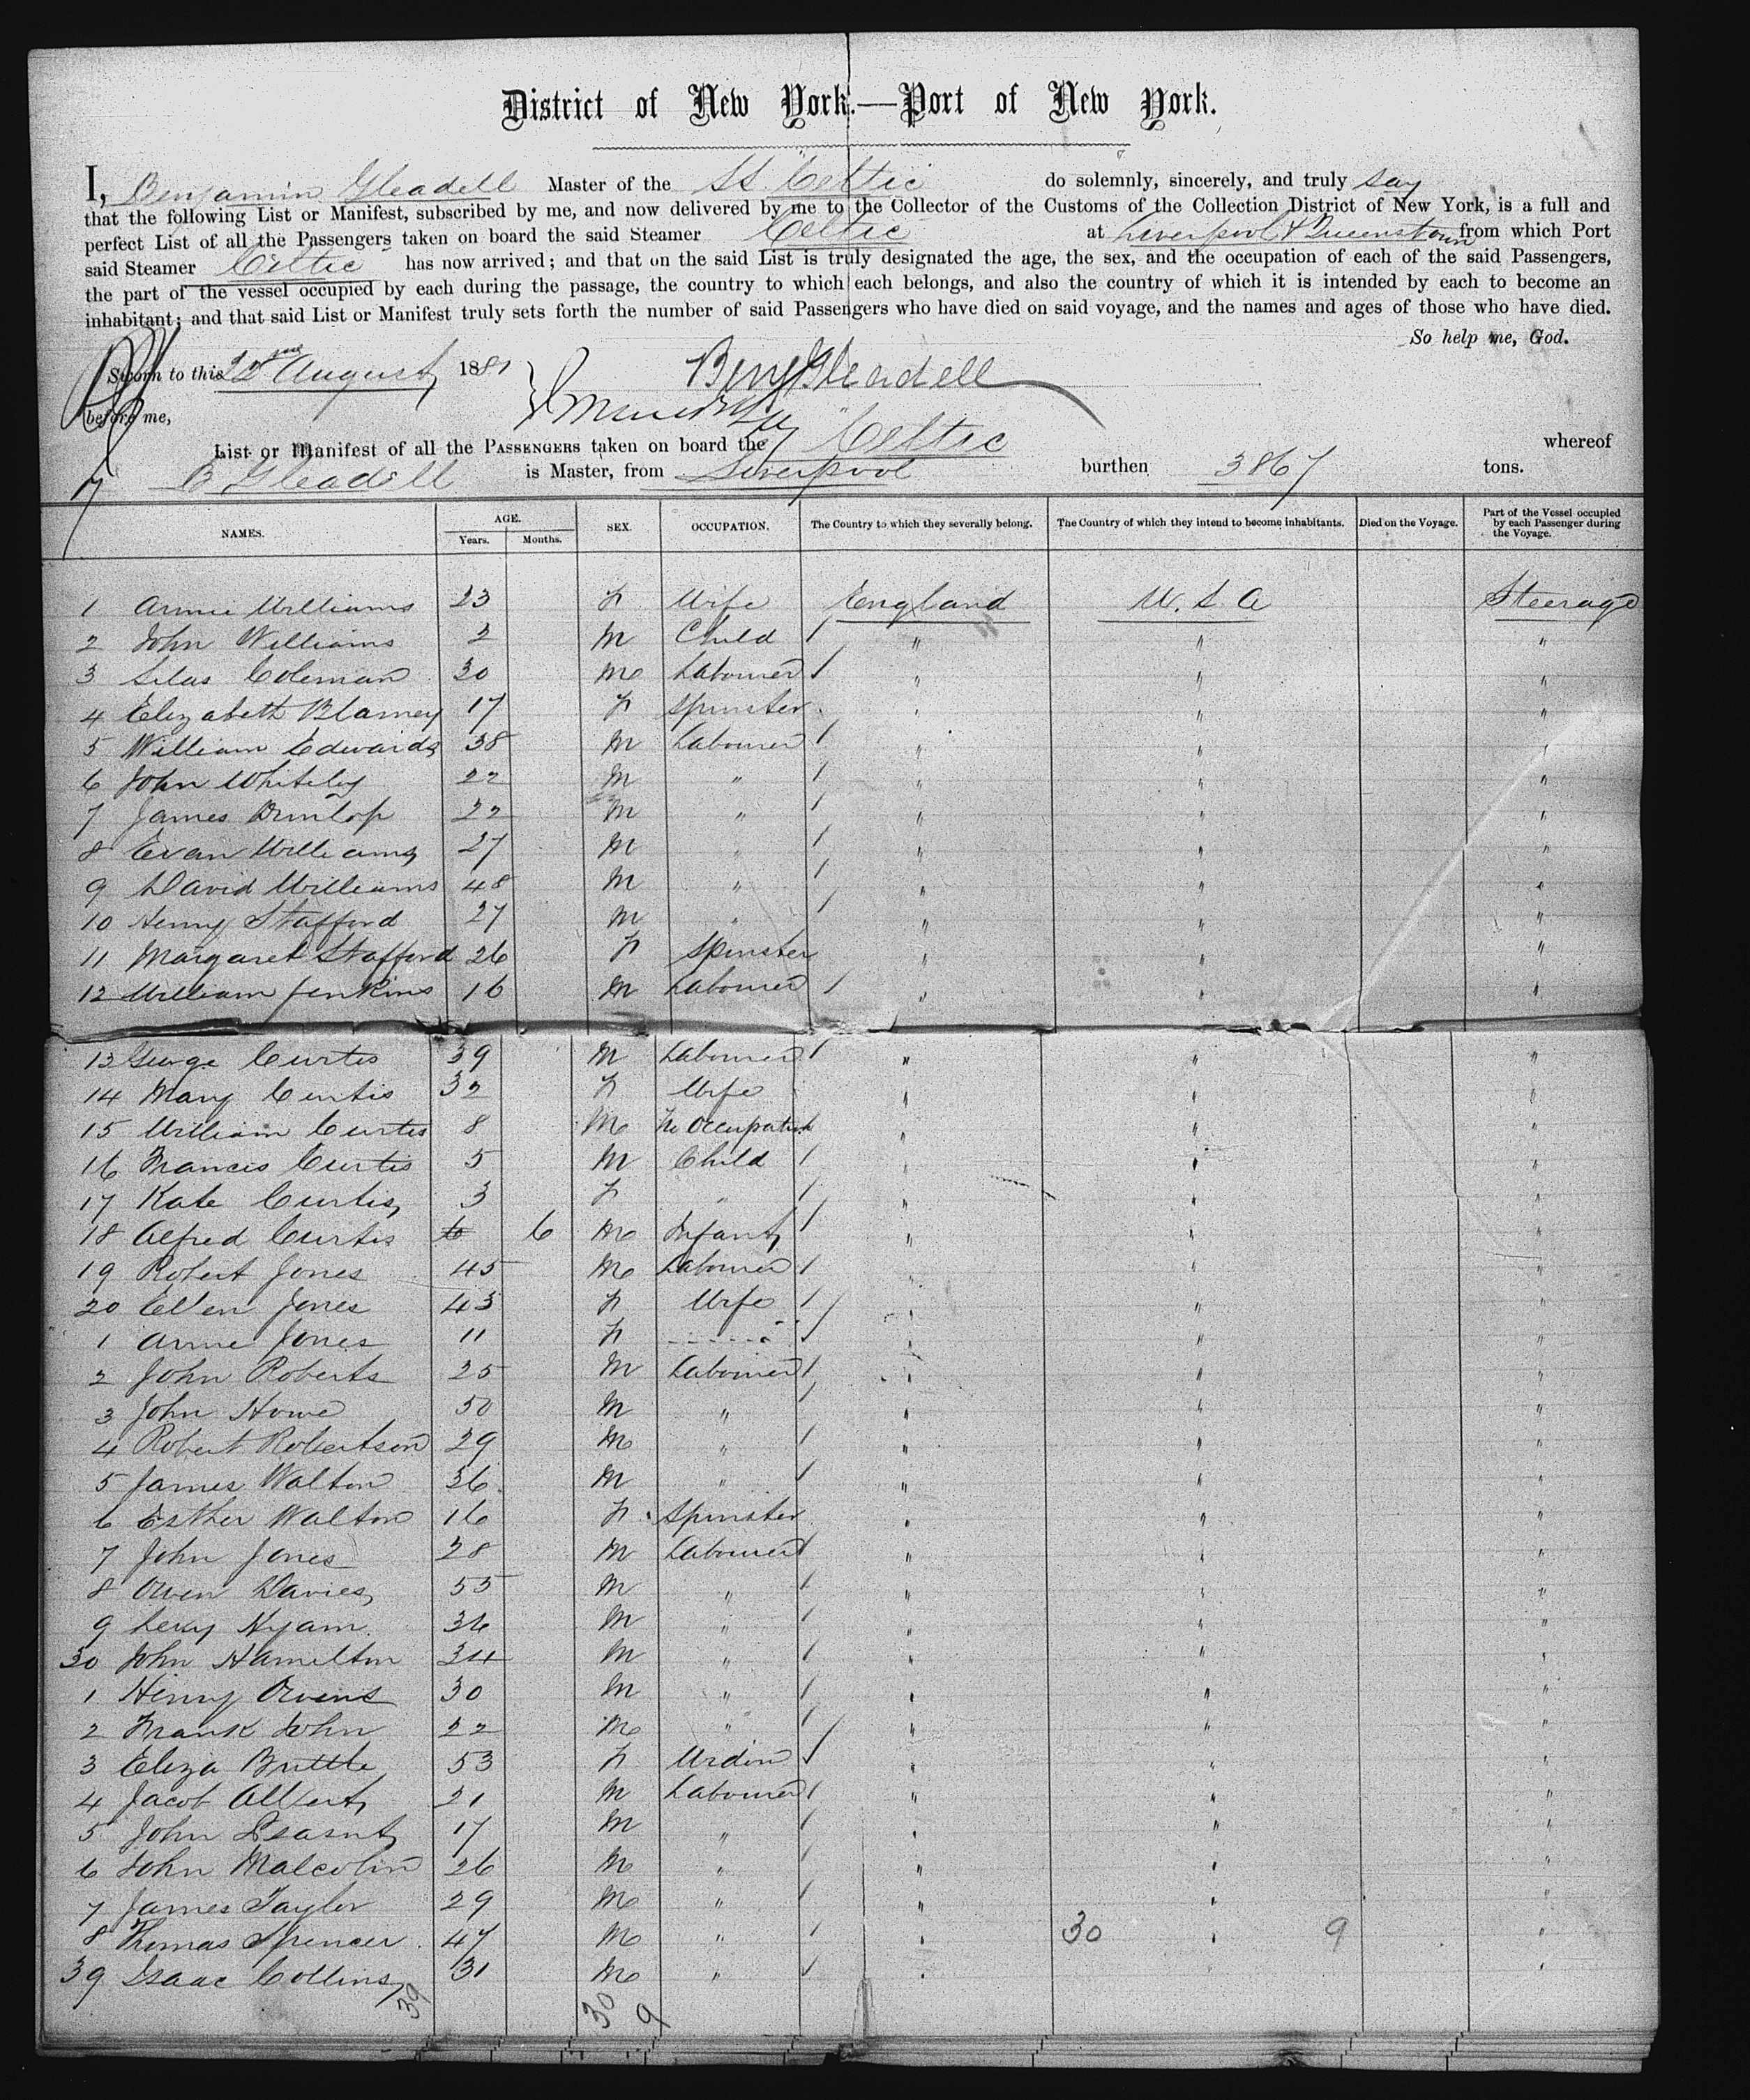 District of New York.—Port of New York.
I, Benjamin Gleadell Master of the SS. Celtic do solemnly, sincerely, and truly say
that the following List or Manifest, subscribed by me, and now delivered by me to the Collector of the Customs of the Collection District of New York, is a full and
perfect List of all the Passengers taken on board the said Steamer Celtic at Liverpool & Queenstown from which Port
said Steamer Celtic has now arrived; and that on the said List is truly designated the age, the sex, and the occupation of each of the said Passengers,
the part of the vessel occupied by each during the passage, the country to which each belongs, and also the country of which it is intended by each to become an
inhabitant; and that said List or Manifest truly sets forth the number of said Passengers who have died on said voyage, and the names and ages of those who have died.
So help me, God.
Sworn to this 22nd August 1881 Benj Gleadell
before me,
List or Manifest of all the PASSENGERS taken on board the Celtic whereof
B Gleadell is Master, from Liverpool burthen 3867 tons.
NAMES. AGE. Years. Months. SEX. OCCUPATION. The Country to which they severally belong. The Country of which they intend to become inhabitants. Died on the Voyage. Part of the Vessel occupied by each Passenger during the Voyage.
1 Annie Williams 23 F Wife England U.S.A Steerage
2 John Williams 2 M Child / " " "
3 Silas Coleman 30 M Labourer / " " "
4 Elizabeth Blamey 17 F Spinster " " "
5 William Edwards 38 M Labourer / " " "
6 John Whiteley 22 M " / " " "
7 James Dunlop 22 M " / " " "
8 Evan Williams 27 M " / " " "
9 David Williams 48 M " / " " "
10 Henry Stafford 27 M " / " " "
11 Margaret Stafford 26 F Spinster " " "
12 William Jenkins 16 M Labourer / " " "
13 George Curtis 39 M Labourer / " " "
14 Mary Curtis 32 F Wife " " "
15 William Curtis 8 M No Occupation " " "
16 Francis Curtis 5 M Child / " " "
17 Kate Curtis 3 F " / " " "
18 Alfred Curtis 6 6 M Infant / " " "
19 Robert Jones 45 M Labourer / " " "
20 Ellen Jones 43 F Wife / " " "
1 Annie Jones 11 F ------" / " " "
2 John Roberts 25 M Labourer / " " "
3 John Howe 50 M " / " " "
4 Robert Robertson 29 M " / " " "
5 James Walton 36 M " / " " "
6 Esther Walton 16 F Spinster " " "
7 John Jones 28 M Labourer / " " "
8 Owen Davies 55 M " / " " "
9 Levy Hyam 36 M " / " " "
30 John Hamilton 34 M " / " " "
1 Henry Owens 30 M " / " " "
2 Frank John 22 M " / " " "
3 Eliza Buttle 53 F Widow / " " "
4 Jacob Albert 21 M Labourer / " " "
5 John 17 M " / " " "
6 John Malcolm 26 M " / " " "
7 James Taylor 29 M " / " " "
8 Thomas Spencer 47 M " / " 30 " 9 "
39 Isaac Collins 31 M " / " " "
39 30 9